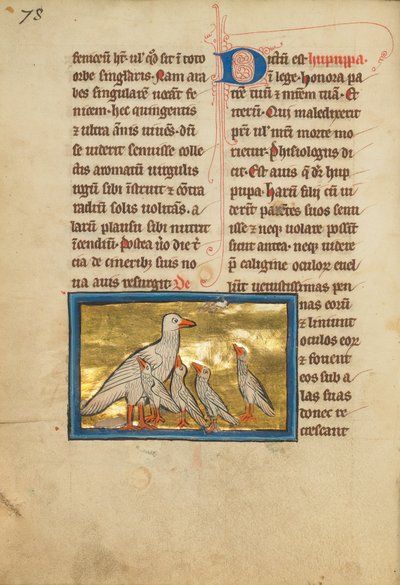 78
fenicem dr̄. ul' qd̄ sit ī toto
orbe singlaris. Nam ara
bes singularē uocāt fe
nicem. hec quingentis
⁊ ultra ānis uiuēs. dū
se uiderit senuisse colle
ctis aromatū uirgulis
rogū sibi īstruit ⁊ ꝯūsa
radiū solis uolitās. a
larū plausu sibi nutrit
īcendiū. Postea ꝟo die t̄
cia de cinerib; suis no
ua auis resurgit. De
Dictū est hupupa.
ī lege. Honora pa
trē tuū ⁊ mr̄em tuā. Et
iterū. Qui maledixerit
pr̄i ul' mr̄i morte mo
rietur. Phisiologus di
cit. Est auis q̄ dr̄ hup
pupa. harū filii cū ui
derint parētes suos senu
isse ⁊ neq; uolare possūt
sicut antea. neq; uidere
p̄ caligine oculor̄ euel
lūt uetustissimas pen
nas eorū
⁊ liniunt
oculos eor̄
⁊ fouent
eos sub a
las suas
donec re
crescant